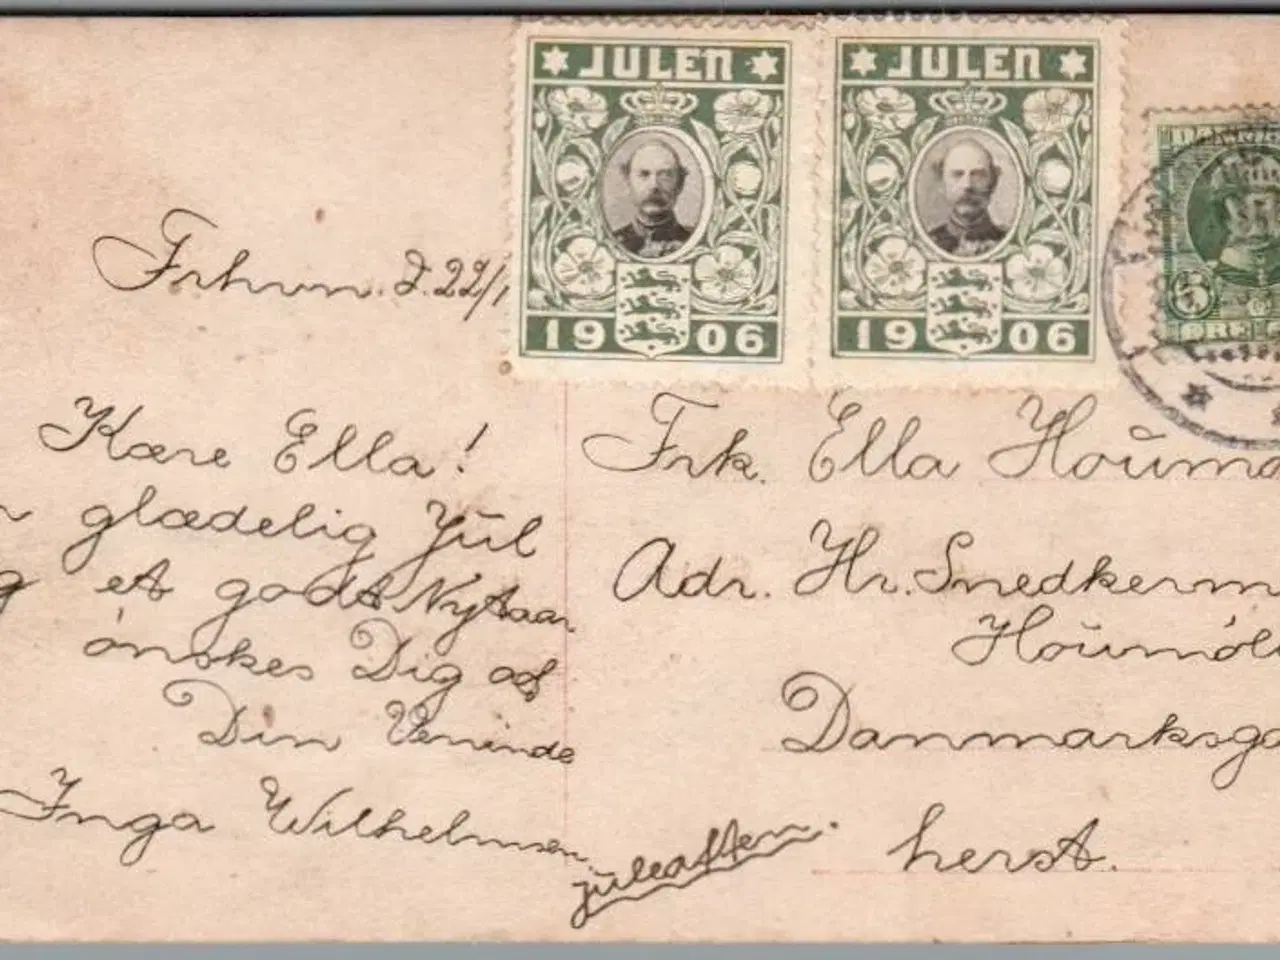 JULEN
1906
JULEN
1906
6
ØRE
Frhvn. d. 22/1
Kære Ella!
n glædelig Jül
g et godt Nytaar
ønskes Dig af
Din Veninde
Inga Wilhelmsen
jüleaften.
Frk. Ella Hoümø
Adr. Hr. Snedkerm
Hoümøl
Danmarksga
herst.